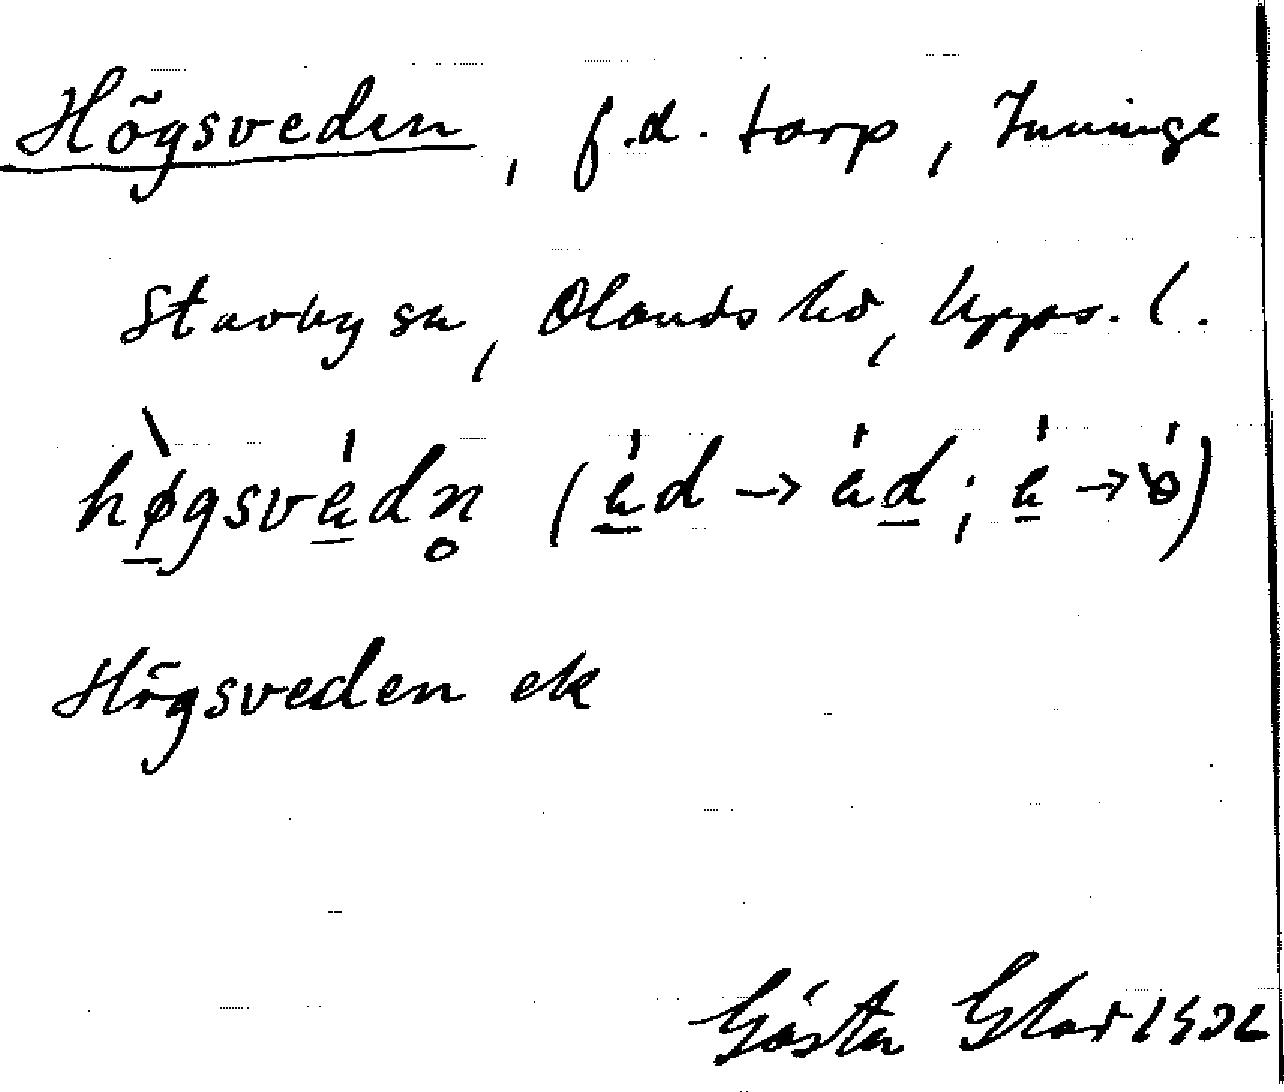 Högsveden, f.d. torp, Inninge
Stavby sn, Olands hd, Upps. l.
hø̀gsvédn̥ (éd → ád; é → ó)
Högsveden ek
Gösta